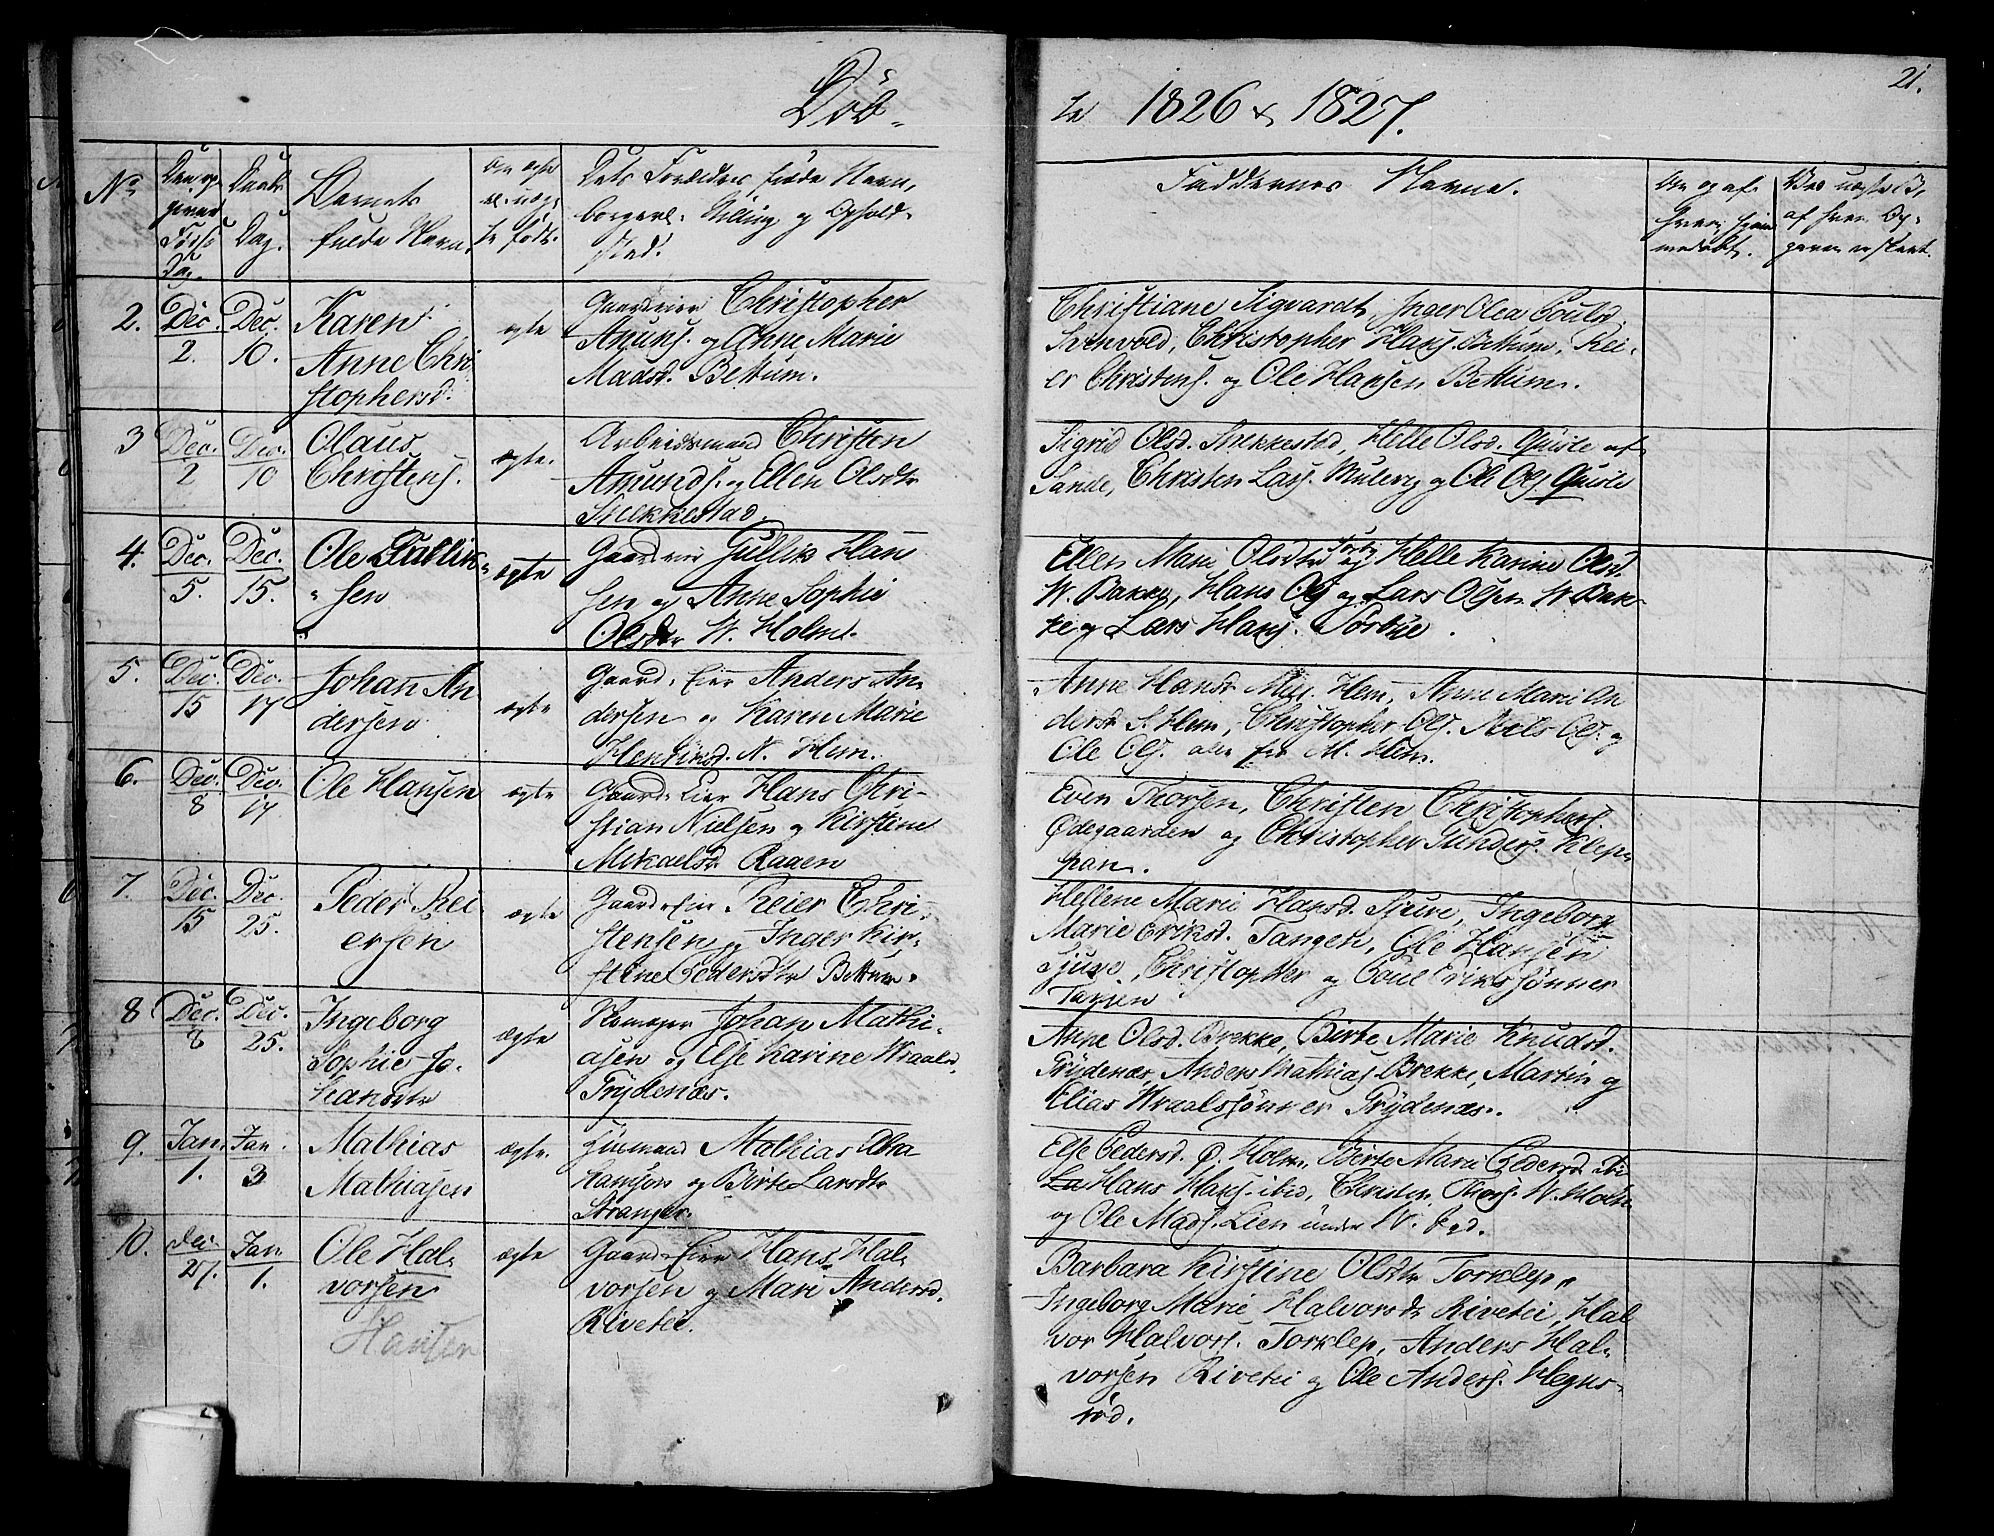 21.
Døb-
te 1826 & 1827.
No
Den op-
given
Føds-
Dag.
Daabs
Dag.
Barnets
fulde Navn.
Om ægte
el. uæg-
te født.
Dets Forældres fulde Navn,
borgerl. Stilling og Opholds-
sted.
Faddernes Navne.
Om og af
hvem hjem-
medøbt.
Ved uægte B.
af hvem Op-
given er skeet.
2. Dec. 2. Dec. 10. Karen
Anne Chri-
stophersd.
ægte
Gaardeier Christopher
Amunds. og Anne Marie
Madsd. Bettum.
Christiane Sigvardt, Inger Olea Pouls.
Svinvold, Christopher Hans. Bettum, Rei-
er Christens. og Ole Hansen Bettum.
3 Dec. 2 Dec. 10 Olaus
Christens.
ægte.
Arbeidsmand Christen
Amunds. og Ellen Olsdtr
Snekkestad.
Sigrid Olsd. Snekkestad, Helle Olsd. Quisle af
Sande, Christen Lars. Mulevig og Ole Ols. Quisle
4. Dec. 5. Dec. 15. Ole Gullik-
sen
ægte
Gaardeier Gullik Han
sen og Anne Sophie
Olsdtr W. Holm.
Ellen Marie Olsdtr og Helle Karine Olsd.
W. Bakke, Hans Ols. og Lars Olsen W. Bak-
ke og Lars Hans.
5. Dec. 15 Dec. 17 Johan An-
dersen
ægte
Gaard-Eier Anders An-
dersen og Karen Marie
Henriksd. N. Hem.
Anne Hansdtr M. Hem, Anne Marie An
dersd. S. Hem, Christopher Ols. Niels Ols. og
Ole Ols. alle fra M. Hem.
6. Dec. 8 Dec. 17 Ole Hansen
ægte
Gaard-Eier Hans Chri-
stian Nielsen og Kirstine
Mikaelsdtr Raaen
Even Thorsen, Christen Christophers.
Ødegaarden og Christopher Gunders. Klep-
pan.
7. Dec. 15 Dec. 25. Peder Rei-
ersen
ægte
Gaard-Eier Reier Chri-
stensen og Inger Kir-
stine Pedersdtr Bettum.
Hellene Marie Hansd. Sjuve, Ingeborg
Marie Eriksd. Tangen, Ole Hansen
Sjuve, Christopher og Poul Erikssønner
Tangen
8 Dec. 8 Dec. 25. Ingeborg
Sophie Jo-
hansdtr
ægte
Skomager Johan Mathi-
asen og Else Karine Wraalsd.
Frydenæs.
Anne Olsd. Brekke, Birte Marie Knudsd.
Frydenæs, Anders Mathias. Brekke, Martin og
Elias Wraalssønner Frydenæs.
9. Jan. 1. Jan. 3 Mathias
Mathiasen
ægte.
Huusmand Mathias Abra
hamsøn og Birte Larsdtr
Stranger.
Else Pedersd. Ø. Holm, Birte Marie Pedersd.
Hans Hans. ibid, Christen Thors. W. Holm
og Ole Mads. Lien under W.
10. Dec. 27. Jan 1. Ole Hal-
vorsen
Hansen
ægte
Gaard-Eier Hans Hal-
vorsen og Mari Andersd.
Rivetei.
Barbara Kirstine Olsdtr Torklep,
Ingeborg Marie Halvorsdtr Rivetei, Hal
vor Halvors. Torklep, Anders Hal-
vorsen Rivetei og Ole Anders. Hegns-
rød.